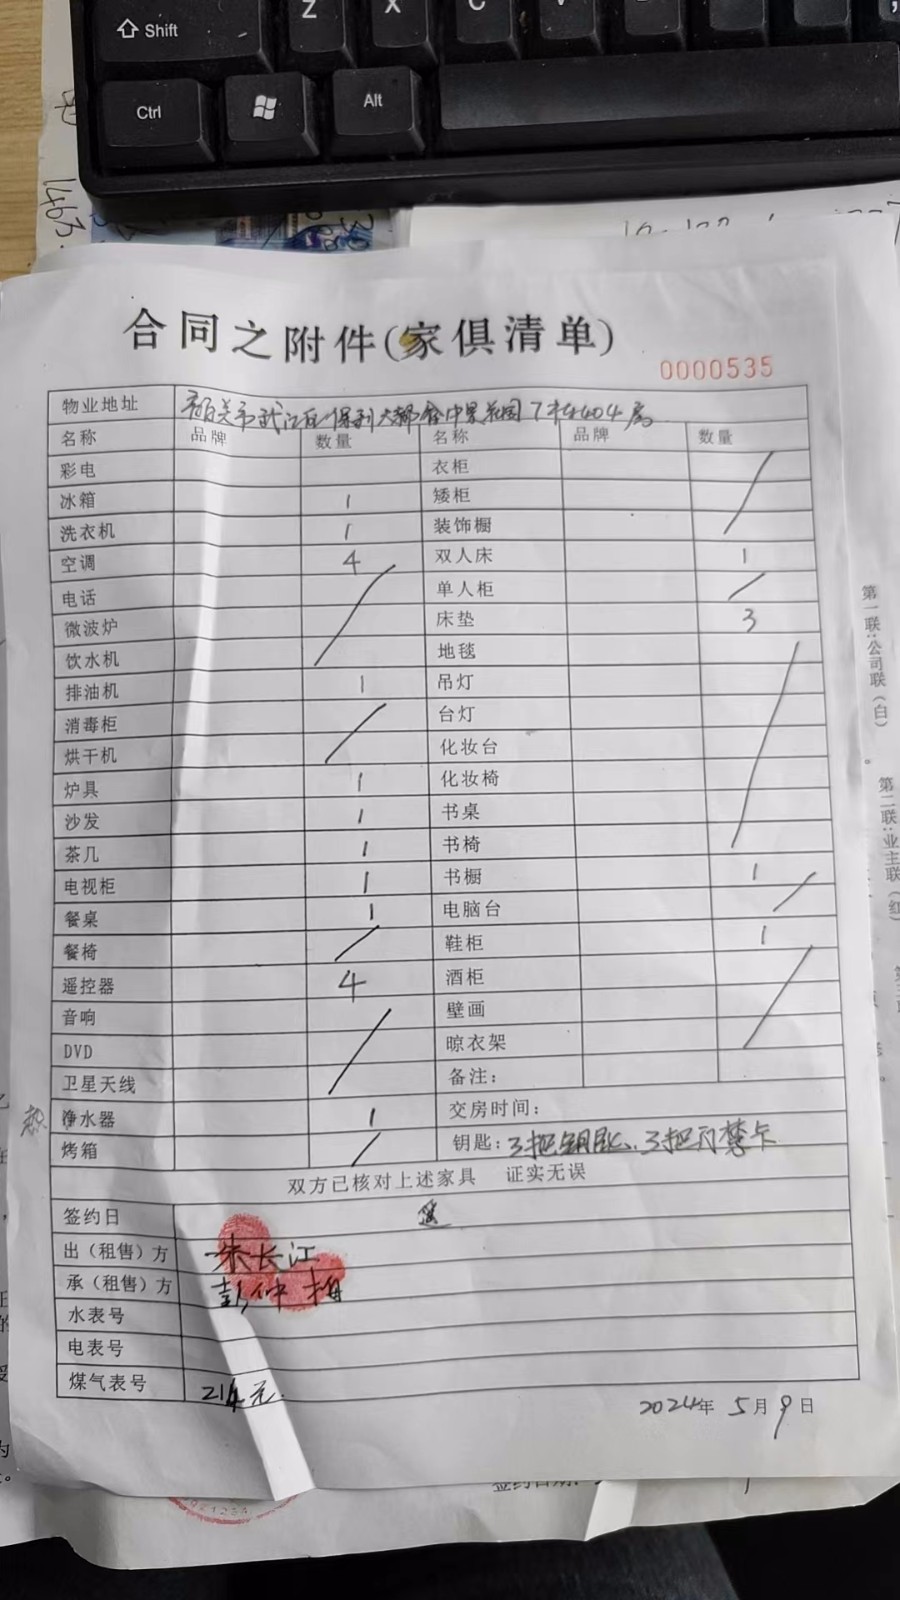 Shift
Z X C V
Ctrl Alt
1463.
合同之附件(家俱清单)
0000535
物业地址 韶关市武江区保利大都会中景花园7栋404房
名称 品牌 数量 名称 品牌 数量
彩电 衣柜
冰箱 1 矮柜
洗衣机 1 装饰橱
空调 4 双人床 1
电话 单人柜
微波炉 床垫 3
饮水机 地毯
排油机 1 吊灯
消毒柜 台灯
烘干机 化妆台
炉具 1 化妆椅
沙发 1 书桌
茶几 1 书椅
电视柜 1 书橱 1
餐桌 1 电脑台
餐椅 鞋柜 1
遥控器 4 酒柜
音响 壁画
DVD 晾衣架
卫星天线 备注:
热 净水器 1 交房时间:
烤箱 钥匙:3把钥匙、3把门禁卡
双方已核对上述家具 证实无误
签约日
出(租售)方 朱长江
承(租售)方 彭仲梅
水表号
电表号
煤气表号 214元.
2024年 5月9日
第一联:公司联(白)。
第二联:业主联(红)
签约日期: